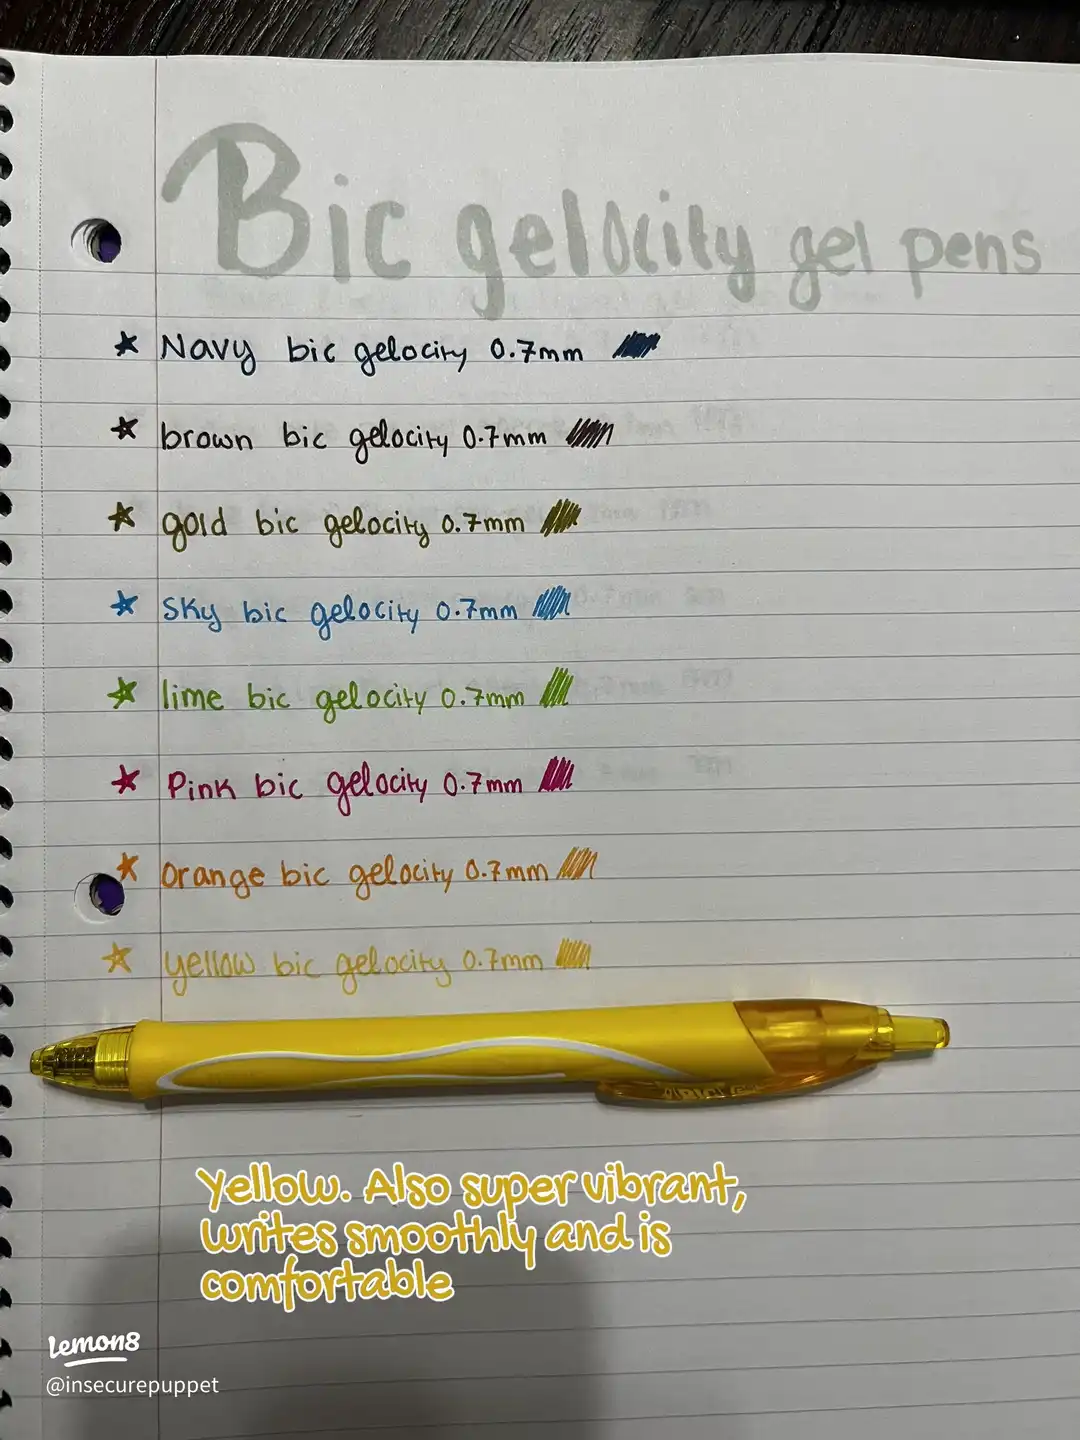 Bic gelocity gel pens
Navy bic gelocity 0.7mm
brown bic gelocity 0.7mm
gold bic gelocity 0.7mm
Sky bic gelocity 0.7mm
lime bic gelocity 0.7mm
Pink bic gelocity 0.7mm
Orange bic gelocity 0.7mm
yellow bic gelocity 0.7mm
Yellow. Also super vibrant,
writes smoothly and is
comfortable
Lemon8
@insecurepuppet